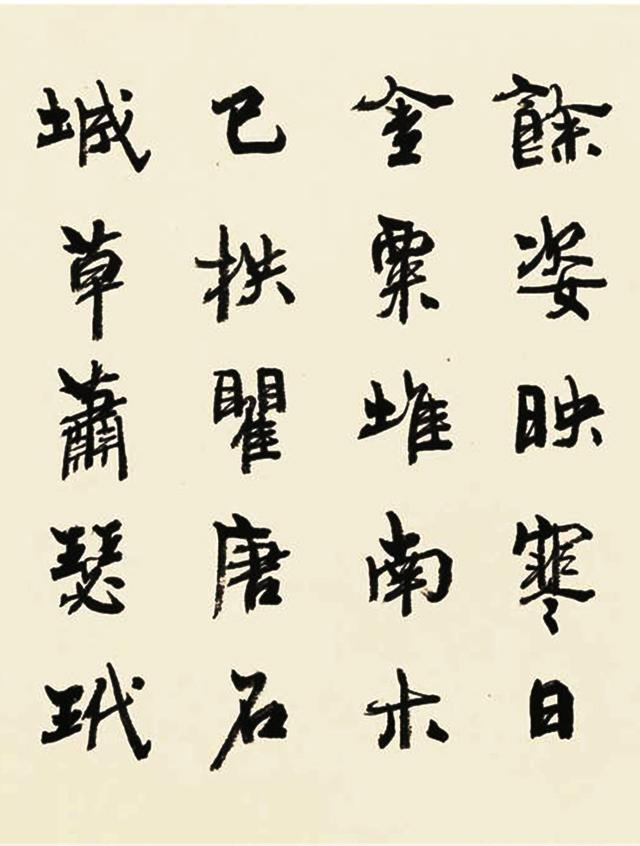 餘姿映寒日
金粟堆南木
已拱瞿唐石
城草蕭瑟玳